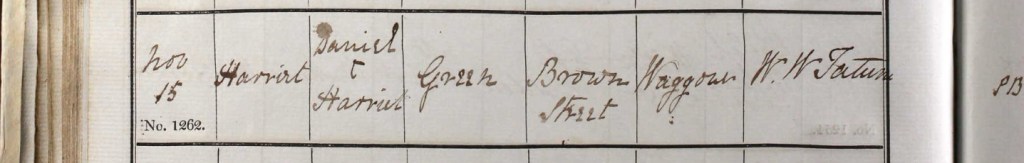 Nov
15
No. 1262.
Harriet
Daniel
&
Harriet
Green
Brown
Street
Waggoner
W. W Tatum
PB